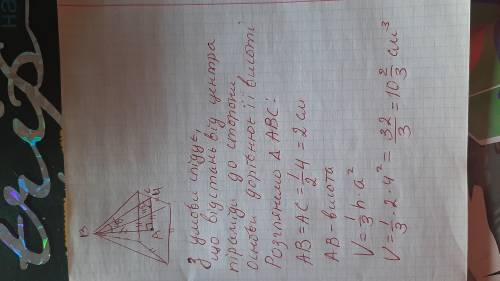 З умови слідує,
що відстань від центра
піраміди до сторони
основи дорівнює її висоті
Розглянемо △ ABC:
AB = AC = 1/2 4 = 2 см
AB - висота
V = 1/3 h · a²
V = 1/3 · 2 · 4² = 32/3 = 10 2/3 см³
B
A
C